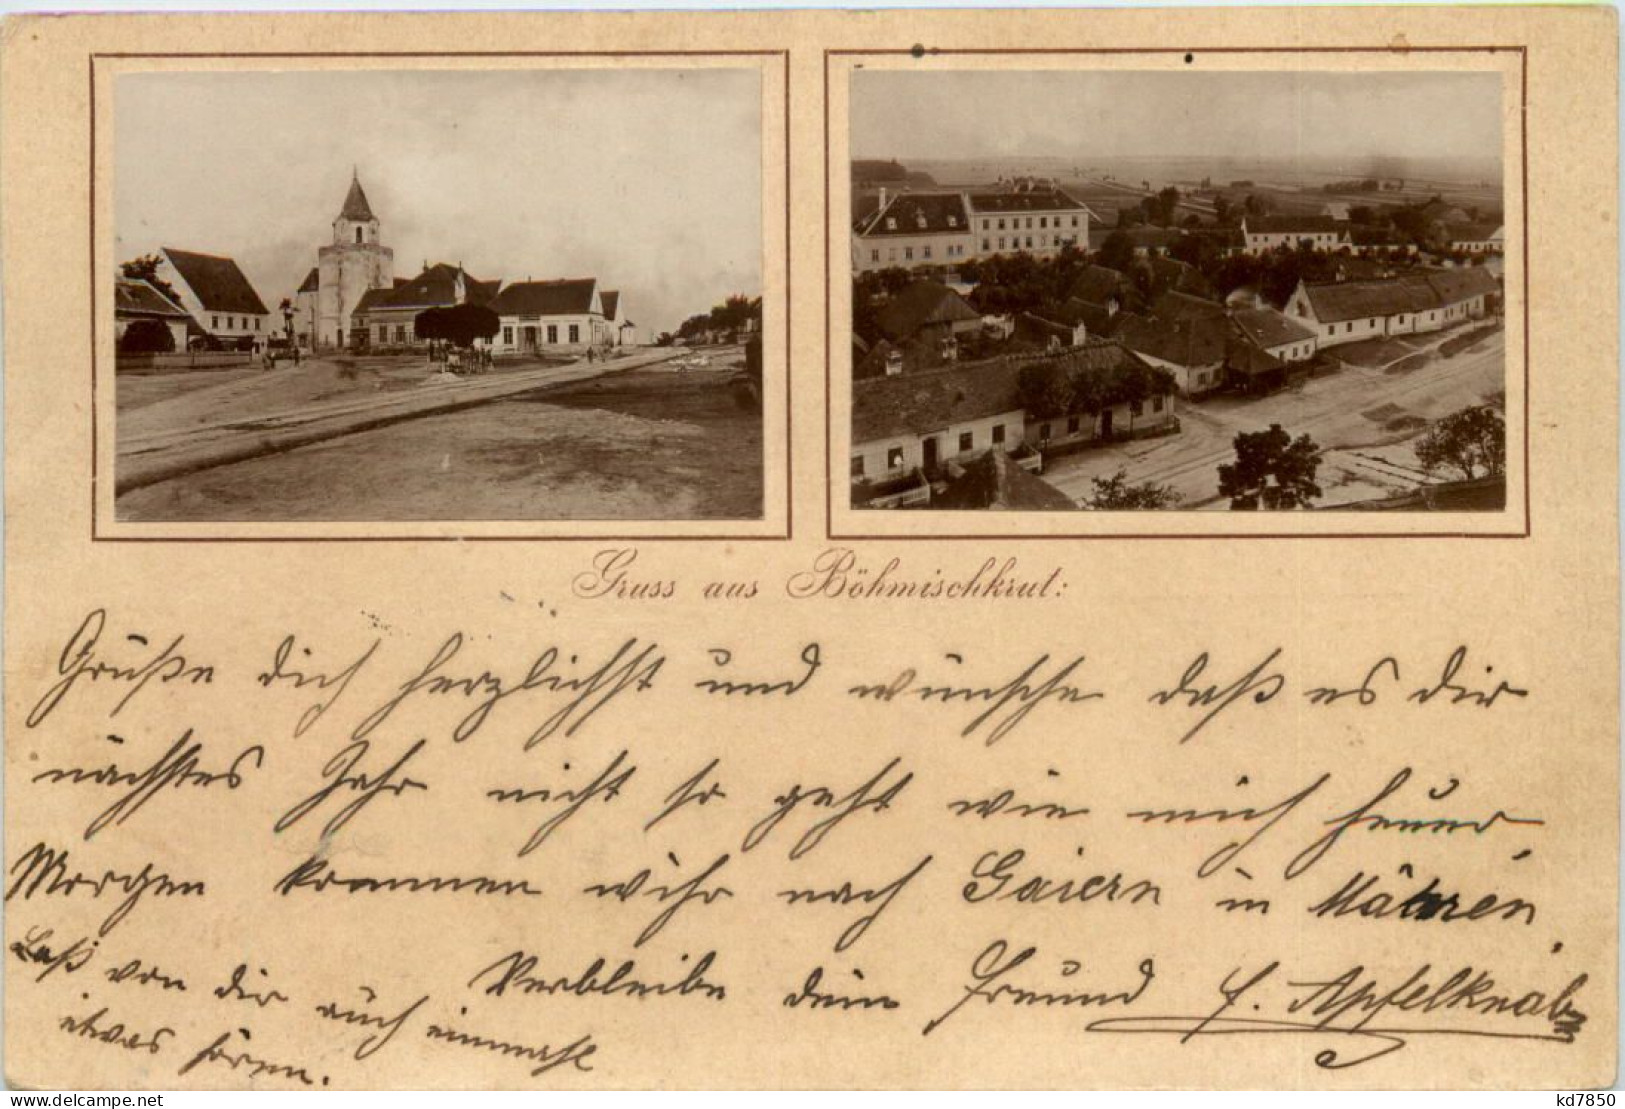 Gruss aus Böhmischkrut:
Grüße dich herzlichst und wünsche daß es dir
nächstes Jahr nicht so geht wie mich heuer,
Morgen kommen wihr nach Gaiern in Mähren.
Verbleibe dein Freund F. Apfelknab
Laß von dir auch einmahl
etwas hören.
kd7850